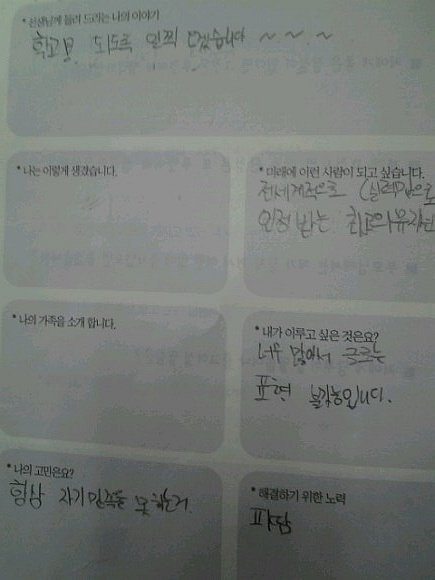 * 선생님께 들려 드리는 나의 이야기
학교 되도록 일찍 오겠습니다 ~ ~ . ~
* 나는 이렇게 생겼습니다.
* 미래에 이런 사람이 되고 싶습니다.
전세계적으로 (실력있으로
인정 받는 최고의
* 나의 가족을 소개 합니다.
* 내가 이루고 싶은 것은요?
너무 많아서 글로는
표현 불가능입니다.
* 나의 고민은요?
항상 자기만족을 못하는거
* 해결하기 위한 노력